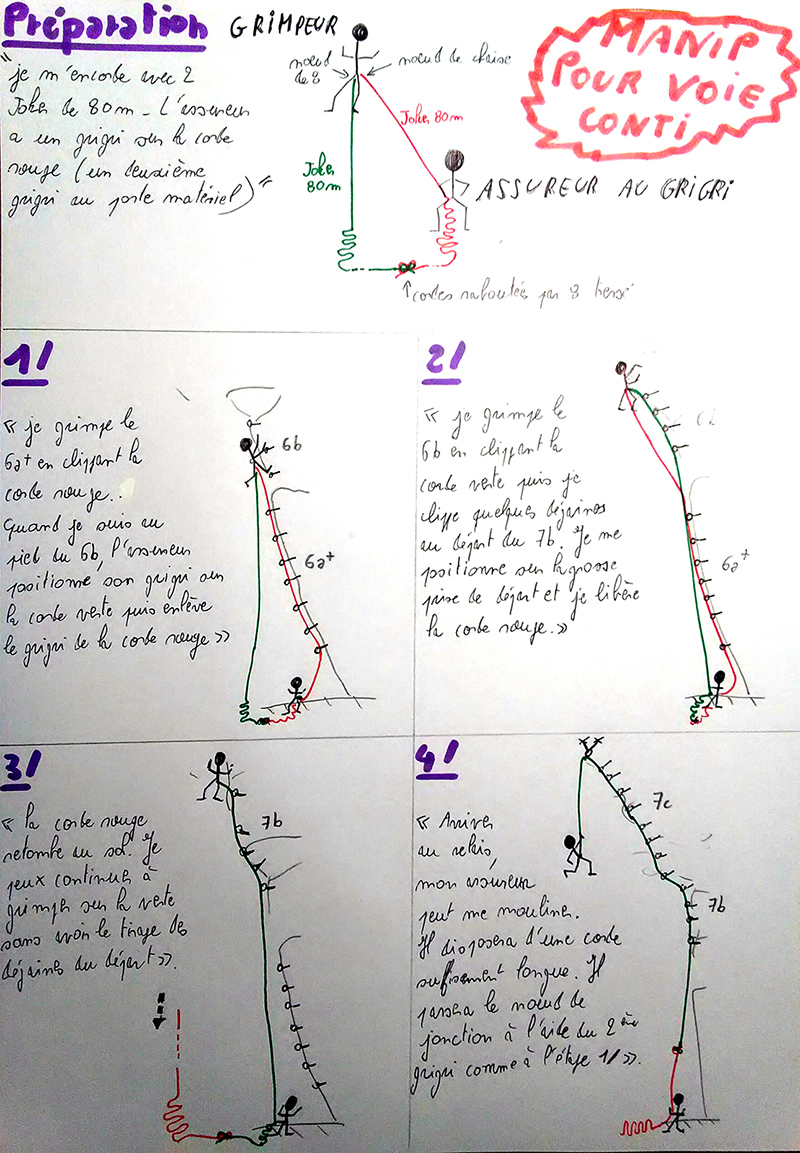 Préparation GRIMPEUR
MANIP
POUR VOIE
CONTI
" je m'encorde avec 2
Joker de 80m - L'assureur
a un grigri sur la corde
rouge (un deuxième
grigri au porte matériel) "
noeud
de 8
noeud de chaise
Joker 80m
Joker
80m
ASSUREUR AU GRIGRI
cordes raboutées par 8 tressé
1/
« je grimpe le
6a+ en clippant la
corde rouge..
Quand je suis au
pied du 6b, l'assureur
positionne son grigri sur
la corde verte puis enlève
le grigri de la corde rouge »
6b
6a+
2/
« je grimpe le
6b en clippant la
corde verte puis je
clippe quelques dégaines
au départ du 7b. Je me
positionne sur la grosse
prise de départ et je libère
la corde rouge. »
6a+
3/
« la corde rouge
retombe au sol. Je
peux continuer à
grimper sur la verte
sans avoir le tirage des
dégaines du départ ».
7b
4/
« Arriver
au relais,
mon assureur
peut me mouliner.
Il disposera d'une corde
suffisement longue. Il
passera le noeud de
jonction à l'aide du 2ème
grigri comme à l'étape 1/ ».
7c
7b